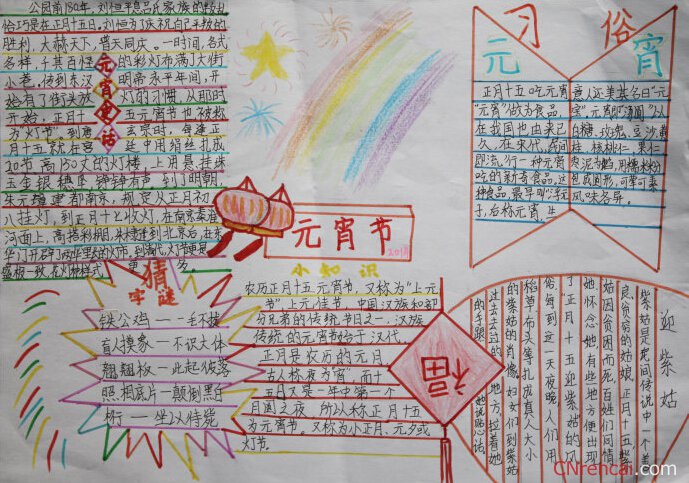 公园前180年,刘恒平息吕氏家族的叛乱
恰巧是在正月十五日。刘恒为了庆祝自己平叛的
胜利,大赦天下,普天同庆。一时间,各式
各样,千其百怪的彩灯布满了大街
小巷。传到东汉明帝永平年间,开
始有了街夫放灯的习惯,从那时
开始,正月十五元宵节也被称
为灯节。到唐玄宗时,每逢正
月十五就在宫廷中用绢丝扎成
20节高150丈的灯楼,上用悬挂珠
玉金银穗座,铮铮有声。到了明朝,
朱元璋建都南京,规定从正月初
八挂灯,到正月十七收灯,在南京秦淮
河面上,高搭彩棚
元宵史话
元习俗宵
正月十五吃元宵
"元宵"做为食品
在我国也由来已
久。在宋代,
即流行一种元宵
吃的新奇食品。这
种食品,最早叫"浮元
子,后称元宵,生
意人还美其名曰"元
宝"。元宵即"汤圆"以
白糖、玫瑰、豆沙、黄
桂、核桃仁、果仁、
枣泥为馅,用糯米粉
包成圆形,可荤可素
风味各异。
元宵节
小知识
农历正月十五元宵节,又称为"上元
节",上元佳节,中国汉族和部
分兄弟的传统节日之一,汉族
传统的元宵节始于汉代。
正月是农历的元月
古人称夜为"宵"而十
五日又是一年中第一个
月圆之夜,所以称正月十五
为元宵节。又称为小正月、元夕或
灯节。
福
猜字谜
铁公鸡——一毛不拔
盲人摸象—不识大体
翘翘板—此起彼落
照相底片—颠倒黑白
桥—坐以待毙
迎紫姑
紫姑是民间传说中一个善
良贫穷的姑娘。正月十五,紫
姑因贫困而死。百姓们同情
她怀念她,有些地方便出现
了正月十五迎紫姑的风
俗。每到这一天夜晚,人们用
稻草布头等扎成真人大小
的紫姑的肖像。妇女们到紫姑
她说贴心话
CNrencai.com